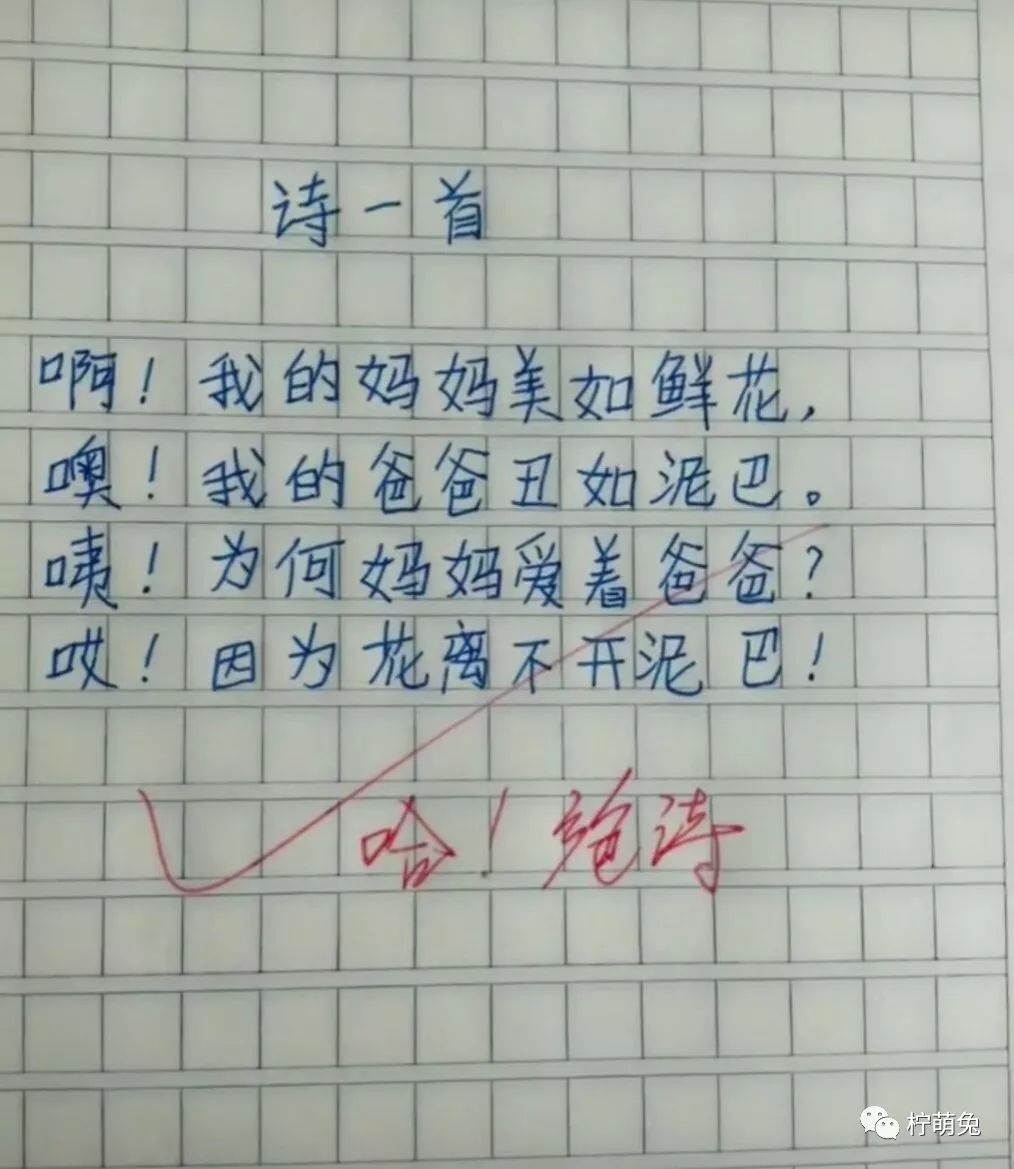 诗一首
啊！我的妈妈美如鲜花，
噢！我的爸爸丑如泥巴。
咦！为何妈妈爱着爸爸？
哎！因为花离不开泥巴！
哈！绝诗
柠萌兔